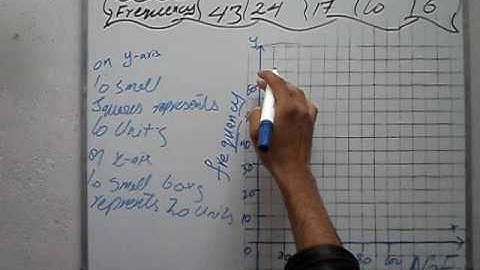 Frequency 43 24 17 10 6
on y-axis
10 small
Squares represents
10 units
on x-axis
10 small boxes
represents 20 units
y
frequency
50
40
30
20
10
0
20
80
100
x